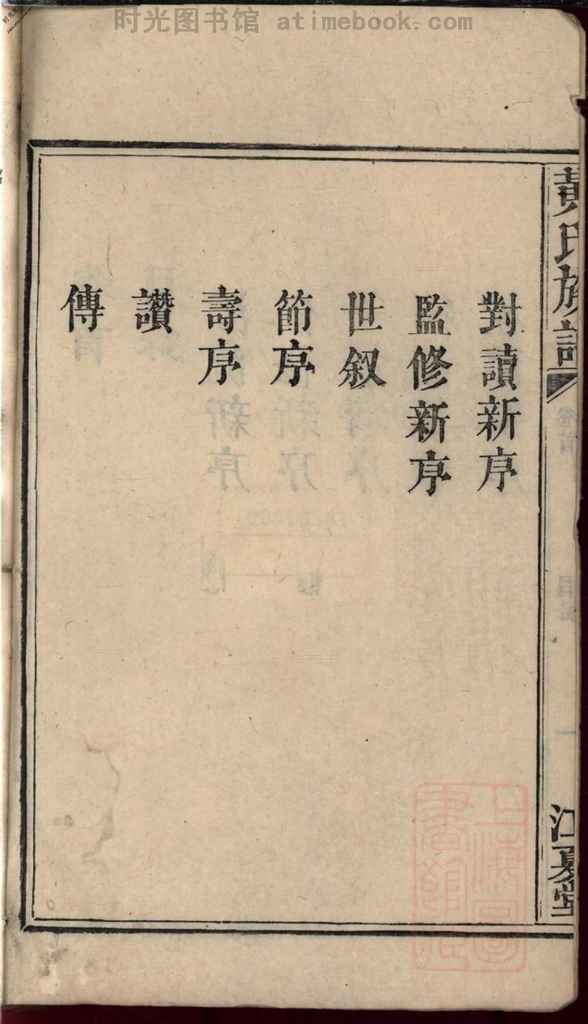 时光图书馆 - atimebook.com
黃氏族譜
江夏堂
對讀新序
監修新序
世叙
節序
壽序
讚
傳